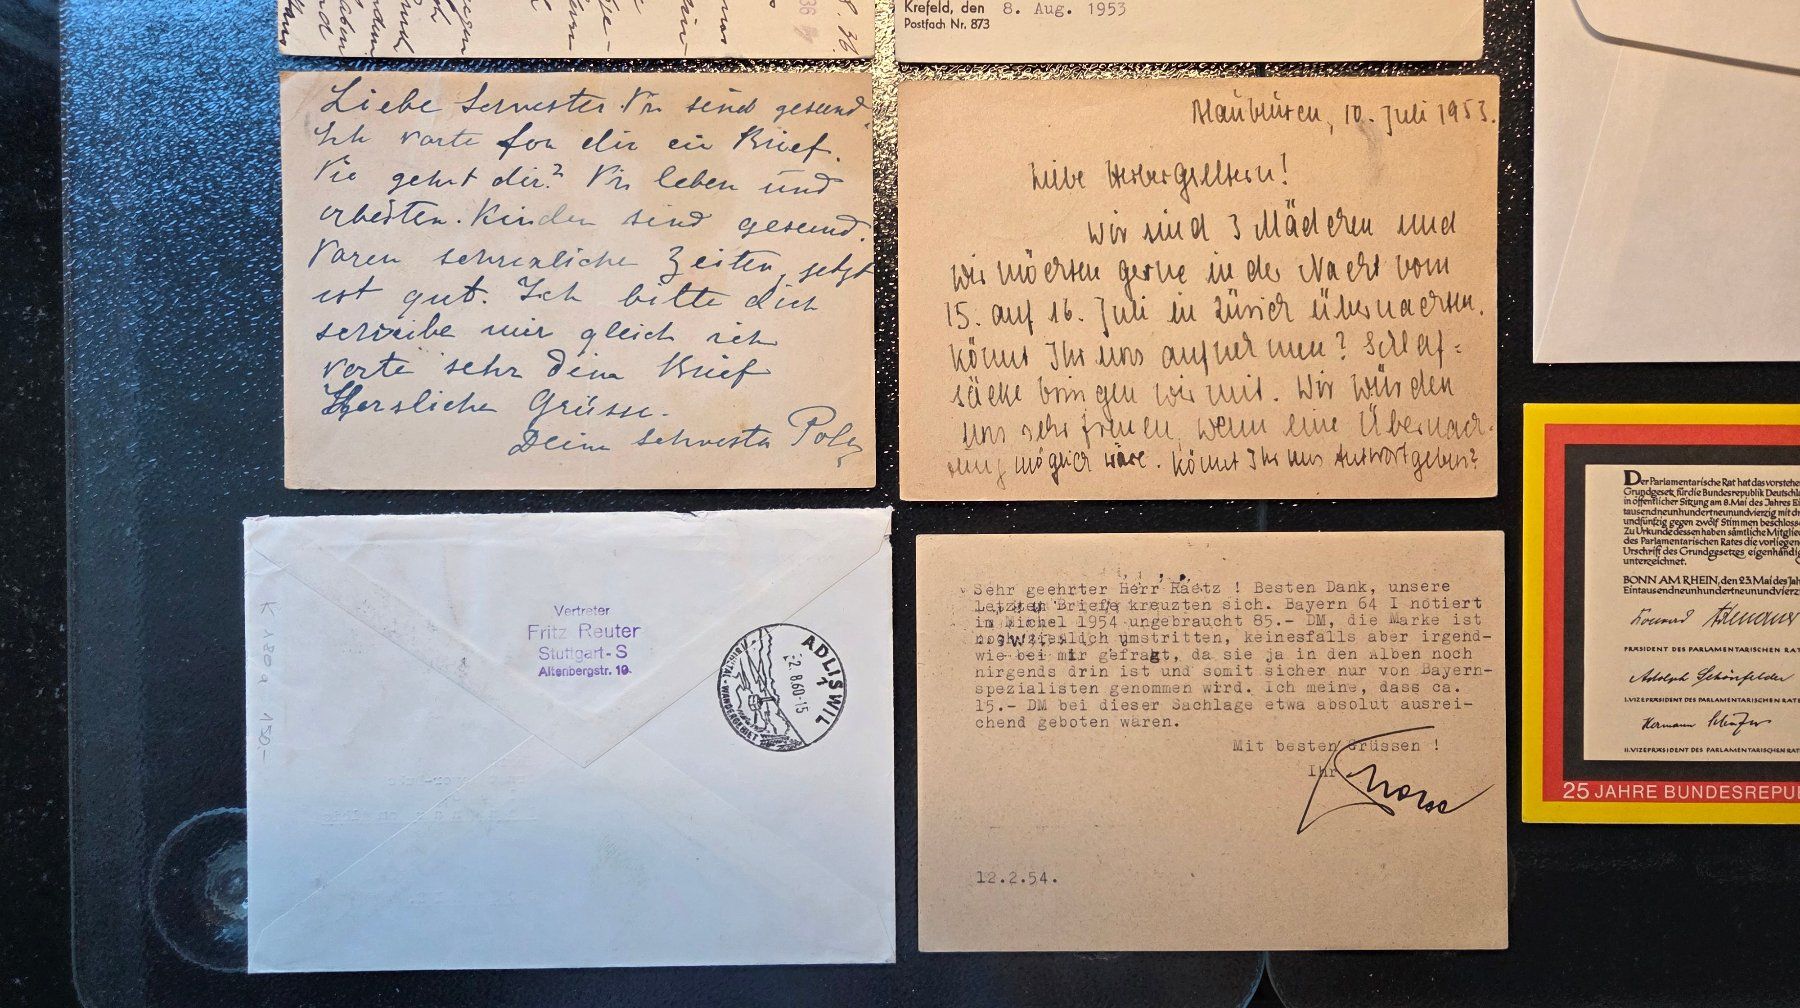 8. 36.
Krefeld, den 8. Aug. 1953
Postfach Nr. 873
Liebe Schwester. Vir sind gesund.
Ich varte fon dir ein Brief.
Vie gehst dir? Vir leben und
arbeiten. Kinder sind gesund.
Varen schrekliche Zeiten, jetzt
ist gut. Ich bitte dich
schreibe mir gleich ich
varte sehr dein Brief
Herzliche Grüsse.
Deine Schvester Pola
Blaubeuren, 10. Juli 1953.
Liebe Herbergseltern!
Wir sind 3 Mädchen und
wir möchten gerne in der Nacht vom
15. auf 16. Juli in Zürich übernachten.
Könnt Ihr uns aufnehmen? Schlaf=
säcke bringen wir mit. Wir würden
uns sehr freuen, wenn eine Übernach-
tung möglich wäre. Könnt Ihr uns Antwort geben?
Vertreter
Fritz Reuter
Stuttgart-S
Altenbergstr. 19.
ADLISWIL
1
-2.8.60-15
SIHLTAL-WANDERGEBIET
K 180a 130-
Sehr geehrter Herr Raetz ! Besten Dank, unsere
letzten Briefe kreuzten sich. Bayern 64 I notiert
im Michel 1954 ungebraucht 85.- DM, die Marke ist
noch ziemlich umstritten, keinesfalls aber irgend-
wie bei mir gefragt, da sie ja in den Alben noch
nirgends drin ist und somit sicher nur von Bayern-
spezialisten genommen wird. Ich meine, dass ca.
15.- DM bei dieser Sachlage etwa absolut ausrei-
chend geboten wären.
Mit besten Grüssen !
Ihr
12.2.54.
Der Parlamentarische Rat hat das vorstehe
Grundgesetz für die Bundesrepublik Deutschla
in öffentlicher Sitzung am 8. Mai des Jahres Ei
tausendneunhundertneunundvierzig mit dr
undfünfzig gegen zwölf Stimmen beschlosse
Zu Urkunde dessen haben sämtliche Mitglie
des Parlamentarischen Rates die vorliegen
Urschrift des Grundgesetzes eigenhändig
unterzeichnet.
BONN AM RHEIN, den 23. Mai des Jah
Eintausendneunhundertneunundvierzig
Konrad Adenauer
PRÄSIDENT DES PARLAMENTARISCHEN RAT
Adolph Schönfelder
I. VIZEPRÄSIDENT DES PARLAMENTARISCHEN RAT
Hermann Schäfer
II. VIZEPRÄSIDENT DES PARLAMENTARISCHEN RAT
25 JAHRE BUNDESREPU